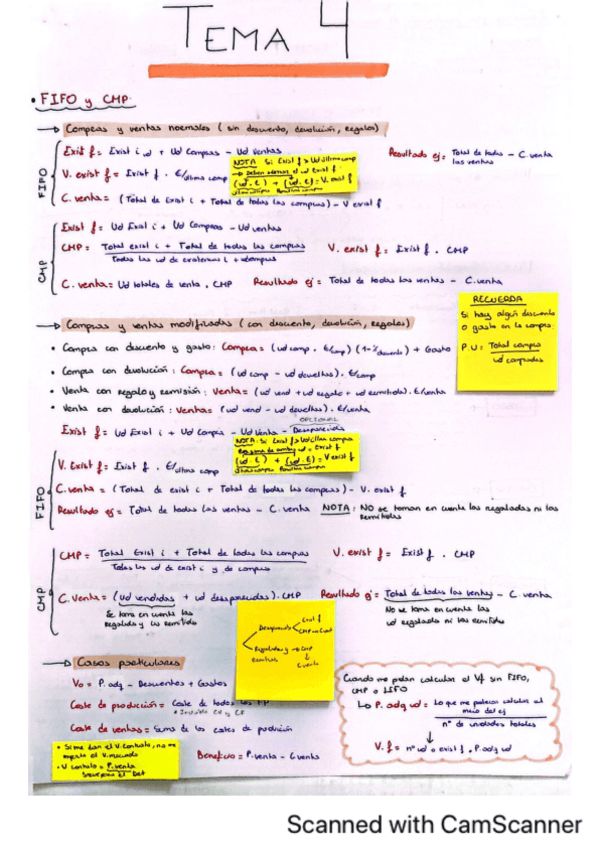 TEMA 4
• FIFO y CMP.
→ Compras y ventas normales (sin descuento, devolución, regalos)
FIFO
Exist f = Exist i ud + Ud Compras - Ud ventas
V. exist f = Exist f . €/última comp
C. venta = (Total de exist i + Total de todas las compras) - V exist f
NOTA Si Exist f > Ud última comp
(ud. €) + (ud. €) = V. exist f
Resultado ej = Total de todas las ventas - C. venta
CMP
Exist f = Ud Exist i + Ud Compras - Ud ventas
CMP = Total exist i + Total de todas las compras
Todas las ud de existencias i + ud compras
V. exist f = Exist f . CMP
C. venta = Ud totales de venta . CMP
Resultado ej = Total de todas las ventas - C. venta
RECUERDA
Si hay algún descuento o gasto en la compra:
P.U = Total compra
ud compradas
→ Compras y ventas modificadas (con descuento, devolución, regalos)
• Compra con descuento y gasto: Compra = (ud comp . €/comp) (1-% descuento) + Gasto
• Compra con devolución: Compra = (ud comp - ud devueltas) . €/comp
• Venta con regalo y remisión: Venta = (ud vend + ud regalo + ud remitida) . €/venta
• Venta con devolución: Ventas = (ud vend - ud devueltas) . €/venta
OPCIONAL
Exist f = Ud Exist i + Ud Compra - Ud Venta - Desaparecida
FIFO
V. Exist f = Exist f . €/última comp
C. venta = (Total de exist i + Total de todas las compras) - V. exist f
Resultado ej = Total de todas las ventas - C. venta
NOTA: Si Exist f > Ud última compra
(ud. €) + (ud. €) = V exist f
NOTA: NO se toman en cuenta las regaladas ni las remitidas
CMP
CMP = Total Exist i + Total de todas las compras
Todas las ud de exist i y de compras
V. exist f = Exist f . CMP
C. Venta = (ud vendidas + ud desaparecidas) . CMP
Se toma en cuenta las regaladas y las remitidas
Resultado ej = Total de todas las ventas - C. venta
No se toma en cuenta las ud regaladas ni las remitidas
Desaparecida
Exist f
Regaladas y remitidas → CMP
↓
C venta
→ Casos particulares
Vo = P. adq - Descuentos + Gastos
Coste de producción = Coste de todos los FP
Coste de ventas = Suma de los costes de producción
• Si me dan el V. contrato, no me importa el V. mercado
• V contrato = P. venta
Beneficio = P. venta - C venta
Cuando me pidan calcular el Vf sin FIFO, CMP o LIFO
↳ P. adq ud = Lo que me pidieron calcular al inicio del ej
nº de unidades totales
↓
V. f = nº ud o exist f . P. adq ud
Scanned with CamScanner